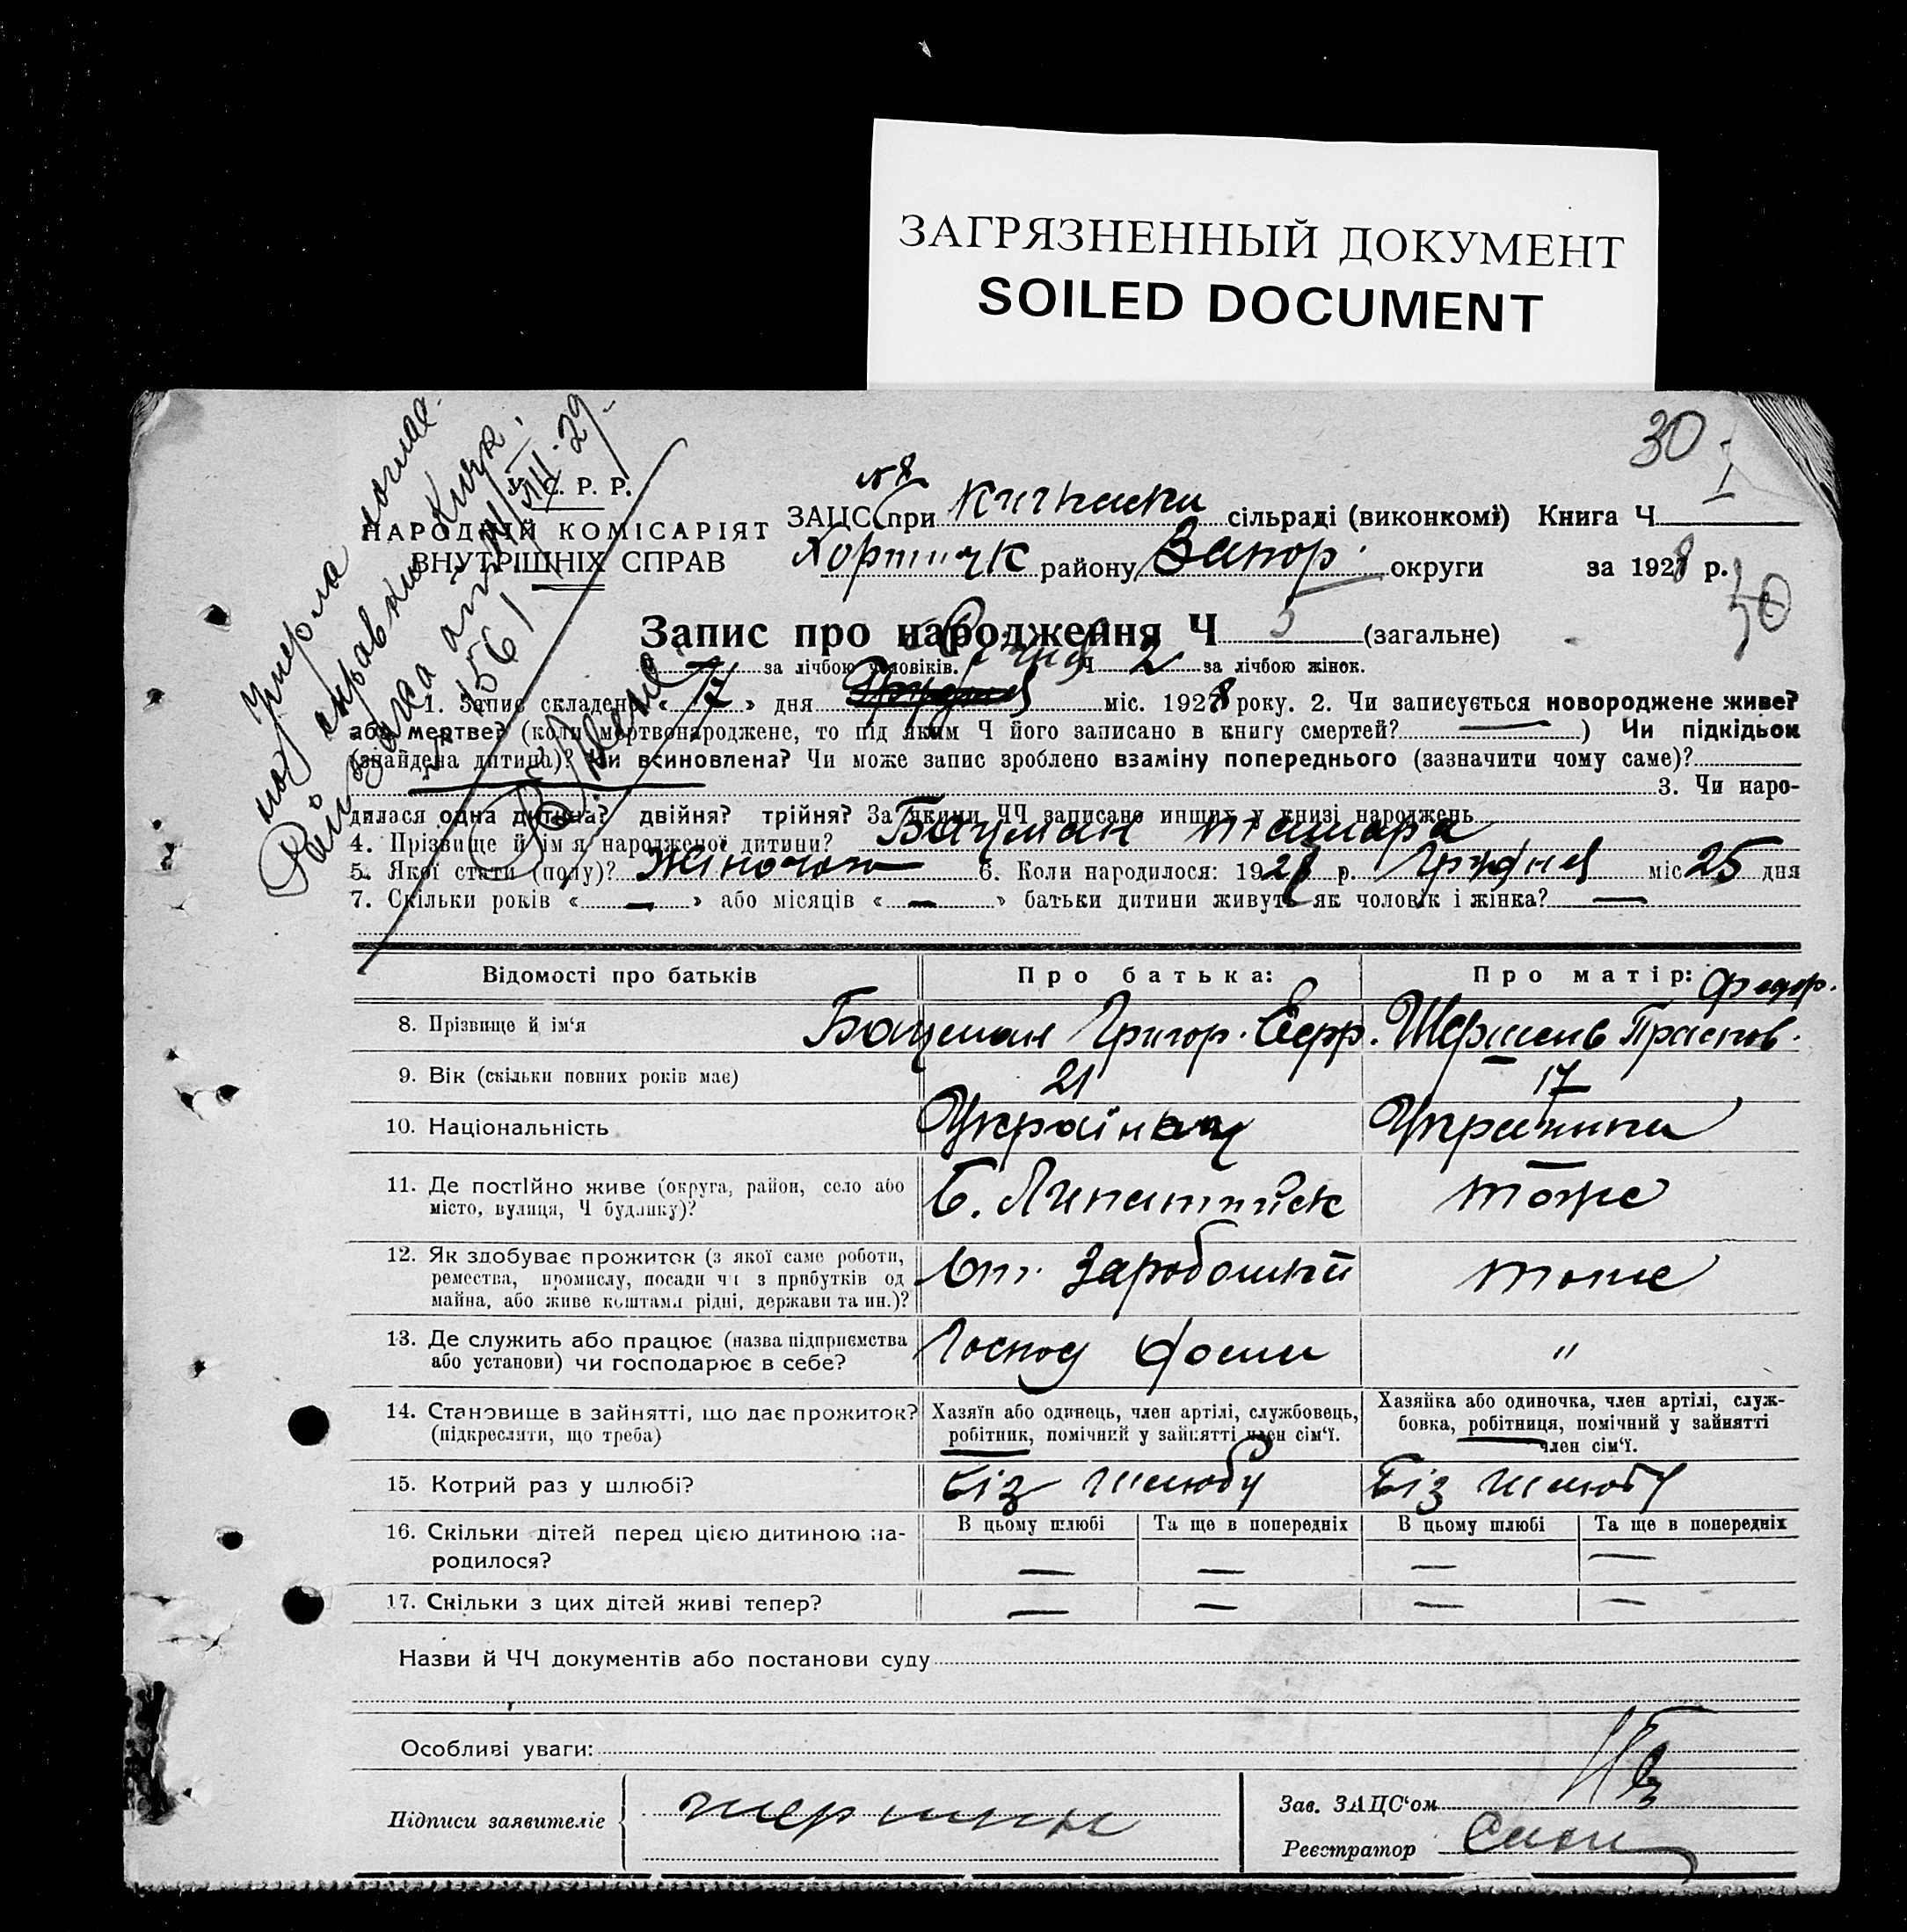 ЗАГРЯЗНЕННЫЙ ДОКУМЕНТ
SOILED DOCUMENT
30
Умерла
У. С. Р. Р.
НАРОДНІЙ КОМІСАРІЯТ
ВНУТРІШНІХ СПРАВ
№ 8
ЗАЦС при Кичкаськ сільраді (виконкомі) Книга Ч.
Хортицьк району Запор. округи за 1928 р.
Запис про народження Ч 5 (загальне)
за лічбою чоловіків. Ч 2 за лічбою жінок.
1. Запис складено « 17 » дня міс. 1928 року. 2. Чи записується новороджене живе?
або мертве? (коли мертвонароджене, то під яким Ч його записано в книгу смертей? ) Чи підкідьок
(знайдена дитина)? Чи всиновлена? Чи може запис зроблено взаміну попереднього (зазначити чому саме)?
3. Чи наро-
дилася одна дитина? двійня? трійня? За якими ЧЧ записано инших у книзі народжень
4. Прізвище й ім'я народженої дитини? Бацман Тамара
5. Якої стати (полу)? Жіночої 6. Коли народилося: 1927 р. Грудня міс 25 дня
7. Скільки років « — » або місяців « — » батьки дитини живуть як чоловік і жінка? —
Відомості про батьків Про батька: Про матір:
8. Прізвище й ім'я Бацман Григор. Шершень Праснов. Федор.
9. Вік (скільки повних років має) 21 17
10. Національність Українец Українка
11. Де постійно живе (округа, район, село або місто, вулиця, Ч будинку)? тоже
12. Як здобуває прожиток (з якої саме роботи, ремества, промислу, посади чи з прибутків од майна, або живе коштами рідні, держави та ин.)? тоже
13. Де служить або працює (назва підприємства або установи) чи господарює в себе? "
14. Становище в зайнятті, що дає прожиток? (підкреслити, що треба) Хазяїн або одинець, член артілі, службовець, робітник, помічний у зайнятті член сім'ї. Хазяйка або одиночка, член артілі, служ-бовка, робітниця, помічний у зайнятті член сім'ї.
15. Котрий раз у шлюбі? Біз шлюбу Біз шлюбу
16. Скільки дітей перед цією дитиною на-родилося? В цьому шлюбі — Та ще в попередніх — В цьому шлюбі — Та ще в попередніх —
17. Скільки з цих дітей живі тепер? — — — —
Назви й ЧЧ документів або постанови суду
Особливі уваги:
Підписи заявителіе
Зав. ЗАЦС'ом
Реєстратор